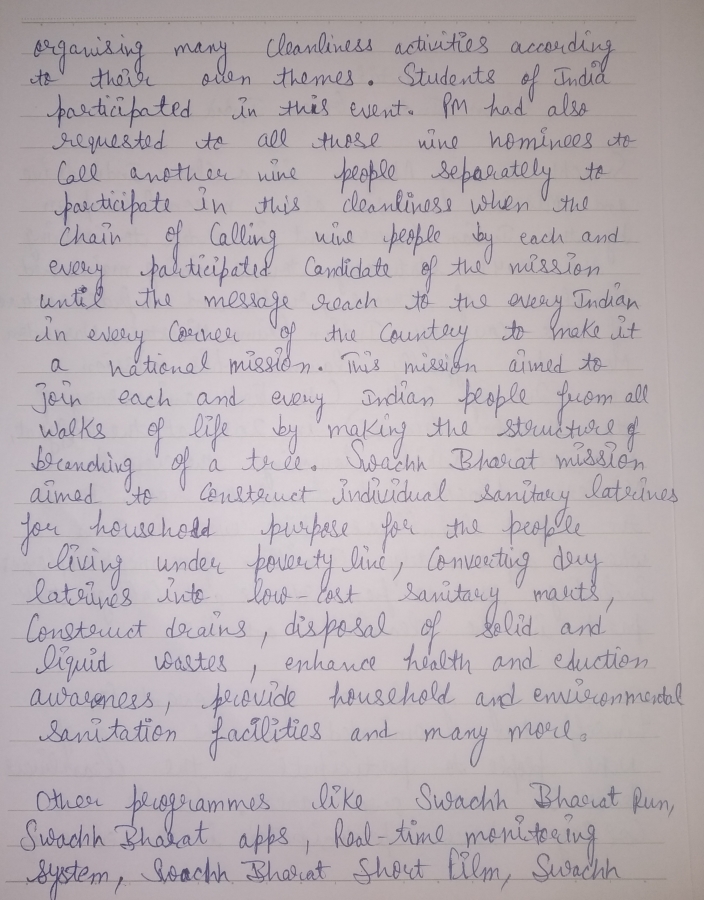 organising many cleanliness activities according
to their own themes. Students of India
participated in this event. PM had also
requested to all those nine nominees to
Call another nine people separately to
participate in this cleanliness when the
Chain of Calling nine people by each and
every participated Candidate of the mission
until the message reach to the every Indian
in every Corner of the Country to make it
a national mission. This mission aimed to
join each and every Indian people from all
walks of life by making the structure of
branching of a tree. Swachh Bharat mission
aimed to Construct individual sanitary latrines
for household purpose for the people
living under poverty line, Converting dry
latrines into low-cost sanitary marts,
Construct drains, disposal of solid and
liquid wastes, enhance health and eduction
awareness, provide household and environmental
sanitation facilities and many more.
Other programmes like Swachh Bharat Run,
Swachh Bharat apps, Real-time monitoring
system, Swachh Bharat Short Film, Swachh